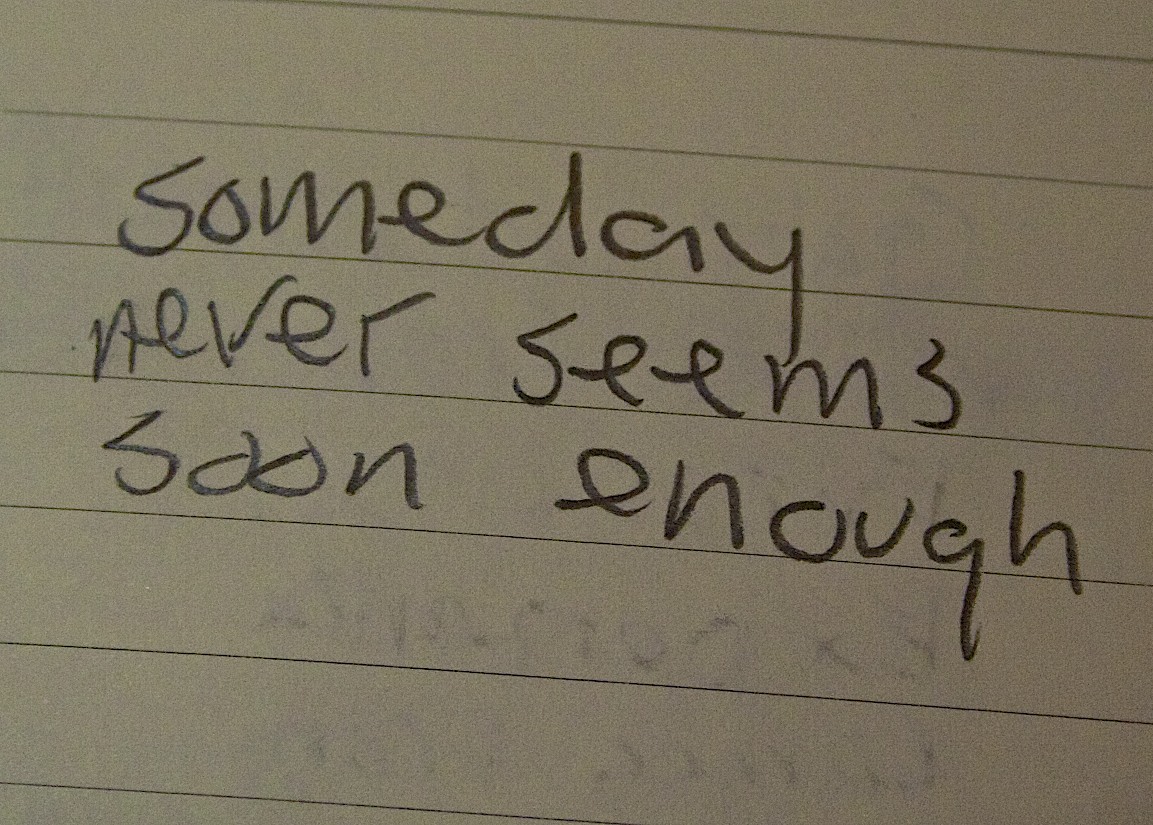 someday
never seems
soon enough